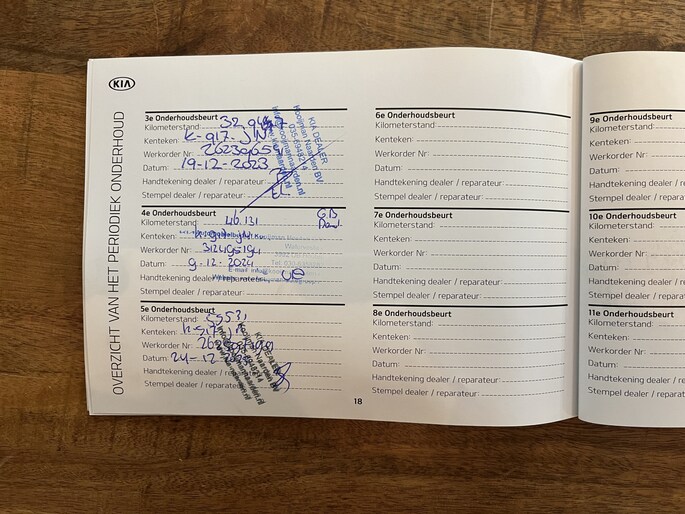 KIA
OVERZICHT VAN HET PERIODIEK ONDERHOUD
3e Onderhoudsbeurt
Kilometerstand:
Kenteken: K-917-
Werkorder Nr:
Datum: 19-12-2023
Handtekening dealer / reparateur:
Stempel dealer / reparateur:
KIA DEALER
Kooijman Naarden BV.
035-6948214
4e Onderhoudsbeurt
Kilometerstand: 46.131
Kenteken:
Werkorder Nr:
Datum: 9-12-2024
Handtekening dealer / reparateur:
Stempel dealer / reparateur:
5e Onderhoudsbeurt
Kilometerstand: 55531
Kenteken:
Werkorder Nr:
Datum: 24-12-
Handtekening dealer /
Stempel dealer / reparateur:
KIA DEALER
Kooijman Naarden BV
6e Onderhoudsbeurt
Kilometerstand:
Kenteken:
Werkorder Nr:
Datum:
Handtekening dealer / reparateur:
Stempel dealer / reparateur:
7e Onderhoudsbeurt
Kilometerstand:
Kenteken:
Werkorder Nr:
Datum:
Handtekening dealer / reparateur:
Stempel dealer / reparateur:
8e Onderhoudsbeurt
Kilometerstand:
Kenteken:
Werkorder Nr:
Datum:
Handtekening dealer / reparateur:
Stempel dealer / reparateur:
18
9e Onderhoudsbeurt
Kilometerstand:
Kenteken:
Werkorder Nr:
Datum:
Handtekening dealer
Stempel dealer / repa
10e Onderhoudsbeurt
Kilometerstand:
Kenteken:
Werkorder Nr:
Datum:
Handtekening dealer /
Stempel dealer / repa
11e Onderhoudsbeurt
Kilometerstand:
Kenteken:
Werkorder Nr:
Datum:
Handtekening dealer /
Stempel dealer / repar